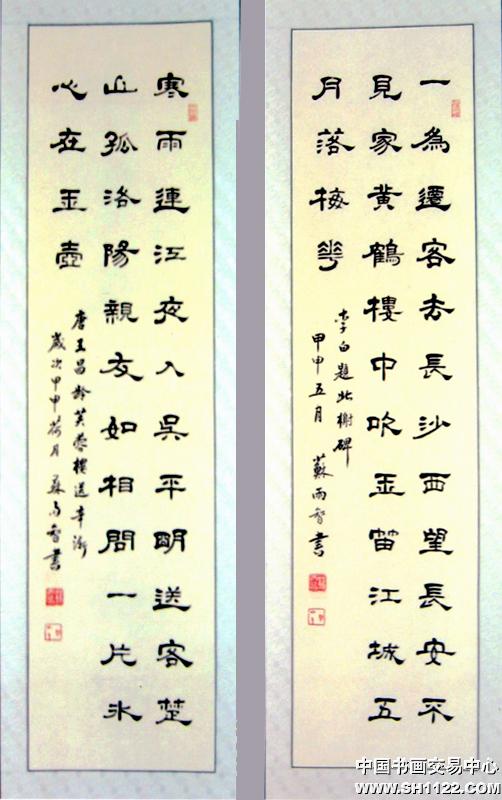 一為遷客去長沙西望長安不
見家黃鶴樓中吹玉笛江城五
月落梅花
李白題北榭碑
甲申五月 蘇雨智書
寒雨連江夜入吳平明送客楚
山孤洛陽親友如相問一片冰
心在玉壺
唐王昌齡芙蓉樓送辛漸
歲次甲申荷月 蘇雨智書
中国书画交易中心
www.SH1122.com